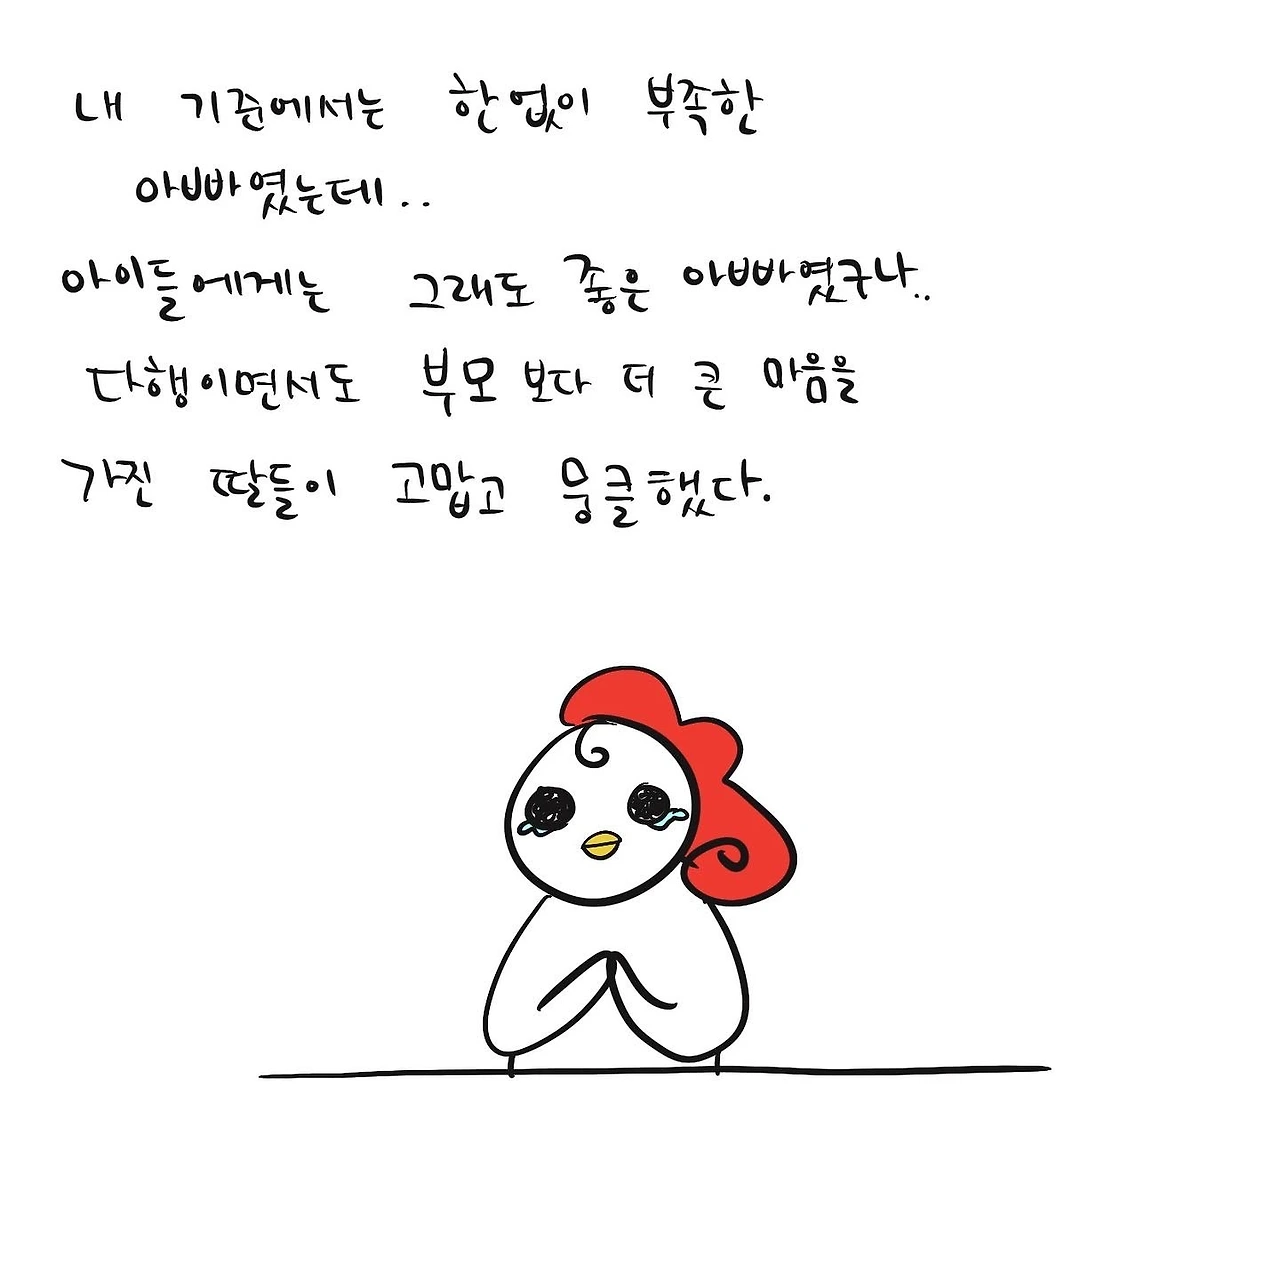 내 기준에서는 한없이 부족한
아빠였는데..
아이들에게는 그래도 좋은 아빠였구나..
다행이면서도 부모 보다 더 큰 마음을
가진 딸들이 고맙고 뭉클했다.